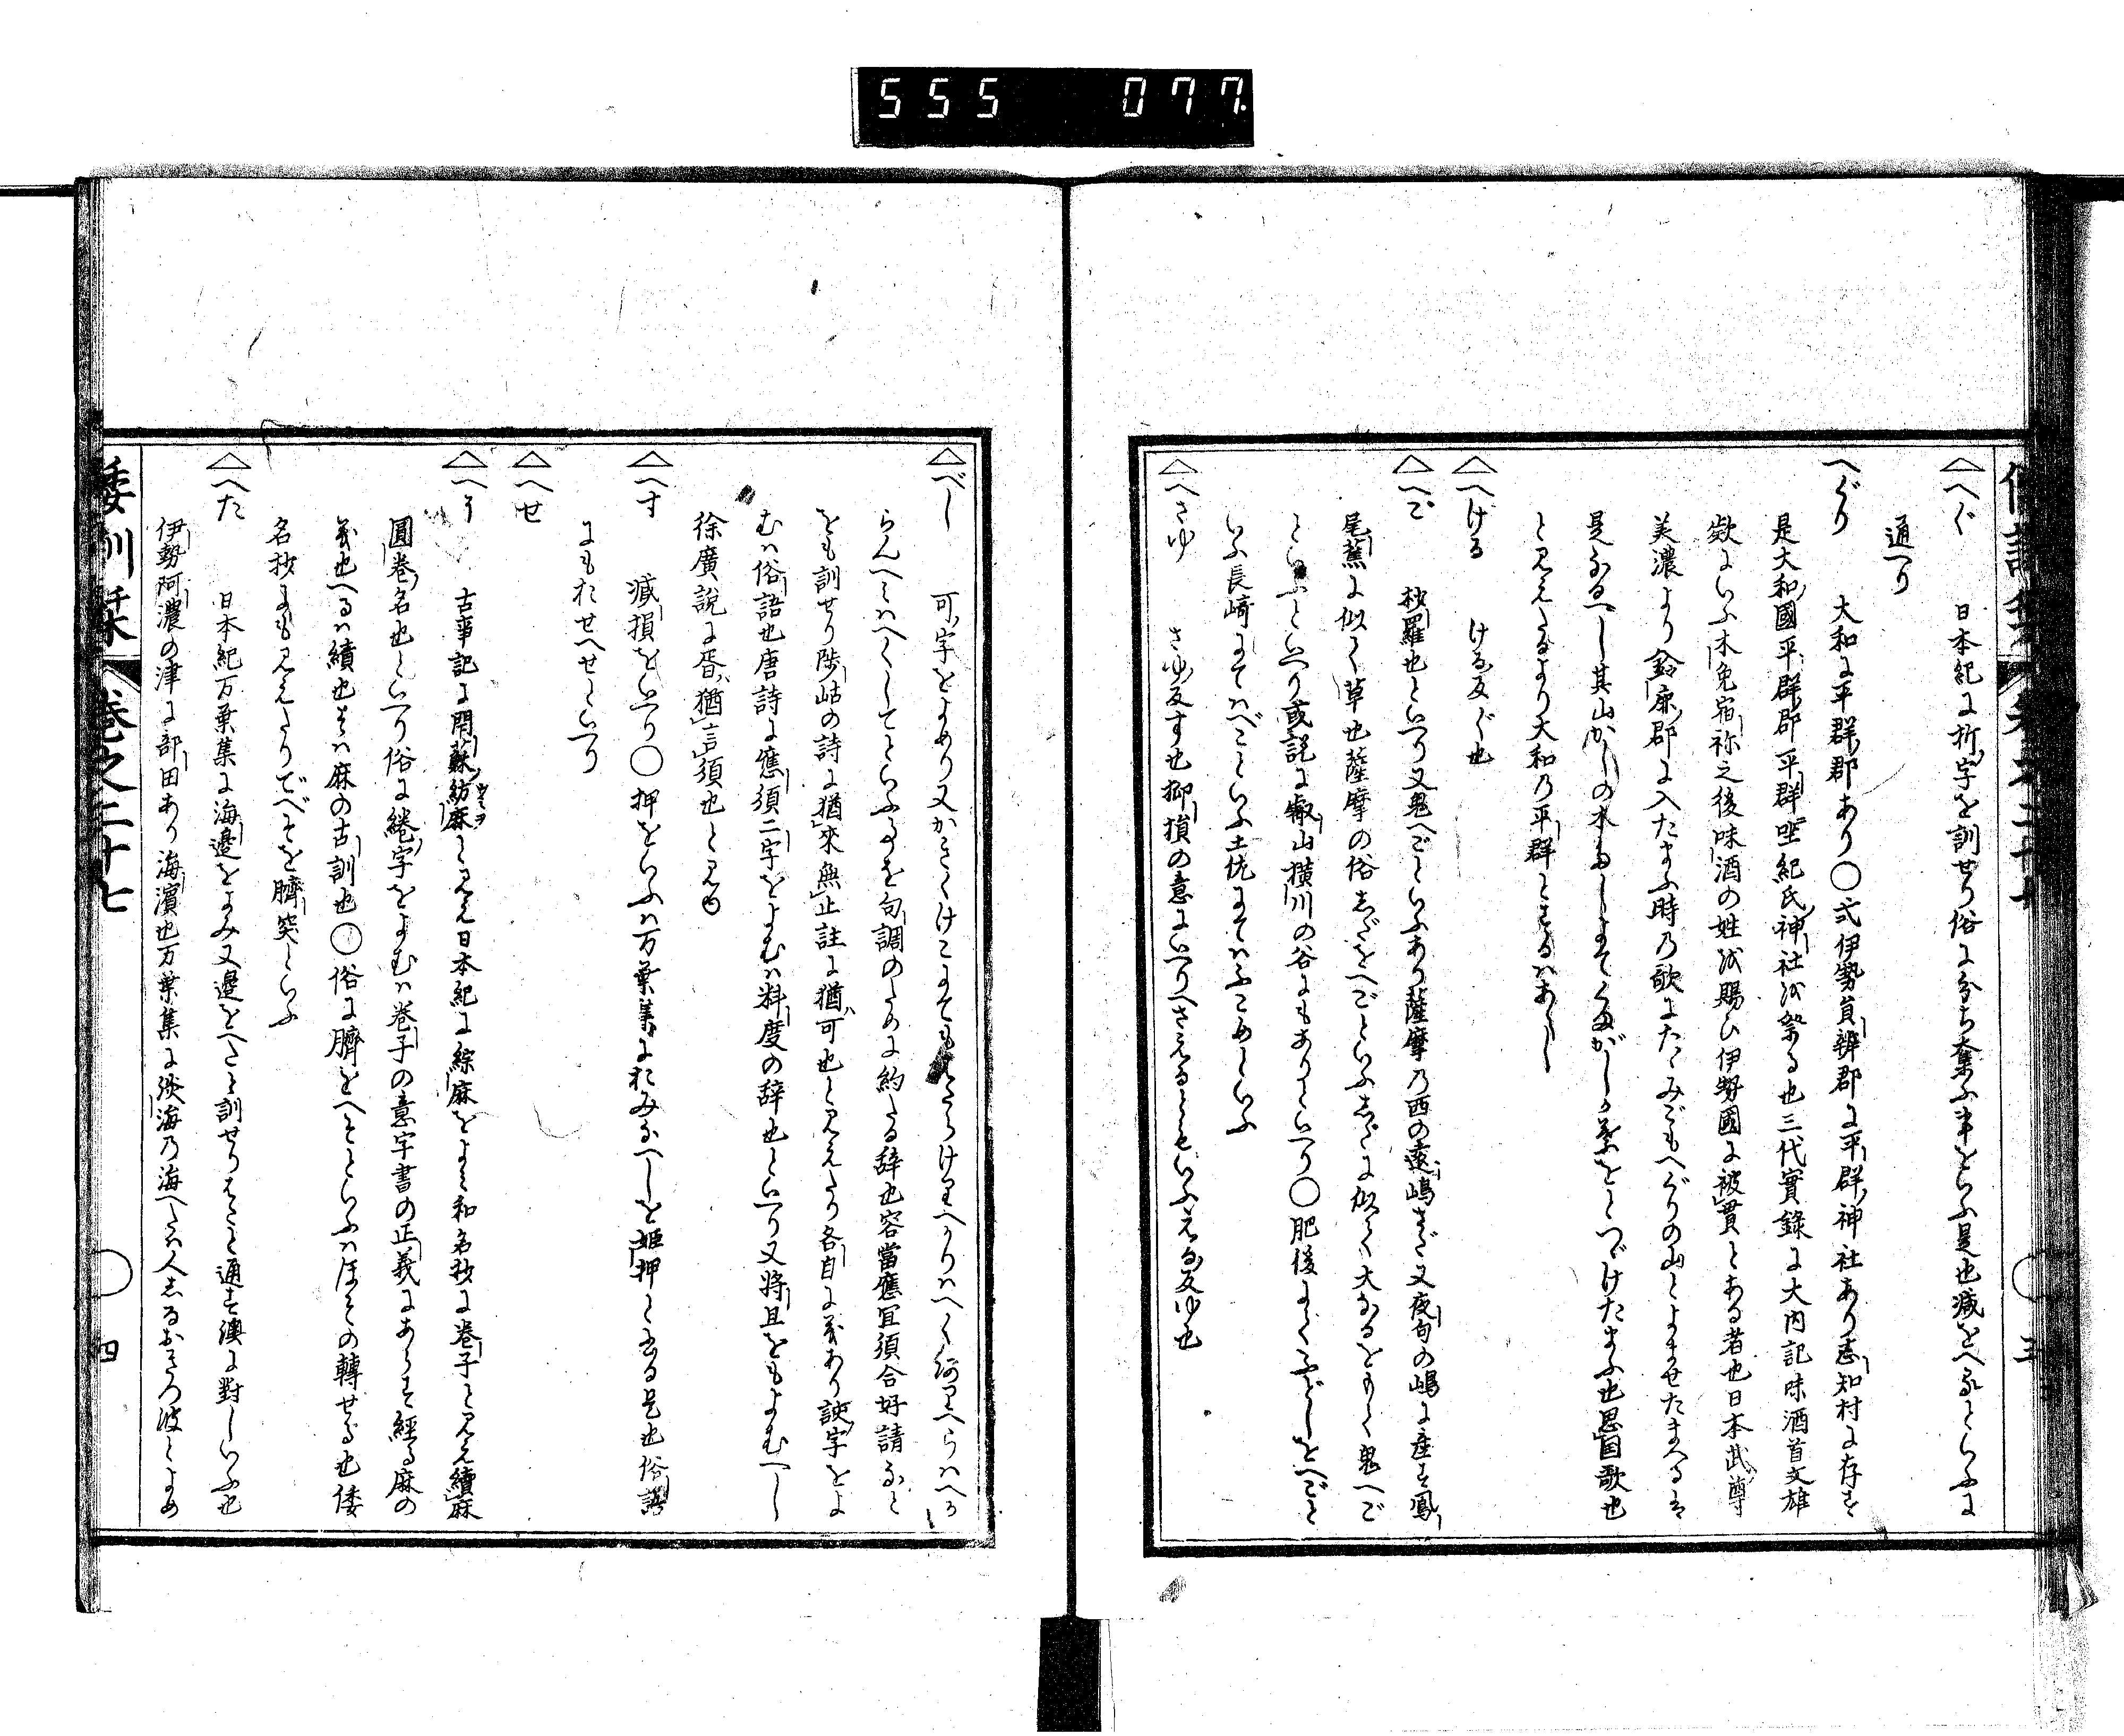 555 077.
△へぐ 日本紀に折字を訓せり俗に分ち奪ふ事をいふ是也減をへるといふに
通へり
へぐり 大和に平群郡あり○式伊勢員辨郡に平群神社あり志知村に存す
是大和國平群郡平群坐紀氏神社を祭る也三代實録に大内記味酒首文雄
款にいふ木兎宿祢之後味酒の姓を賜ひ伊勢國に被貫とある者也日本武尊
美濃より鈴鹿郡に入たまふ時の歌にたゝみごもへぐりの山とよませたまへるは
是なるへし其山かしの木
と見えたるより大和の平群とするはあし
△へける ける反ぐ也
△へご 桫羅也といへり又鬼へごといふあり薩摩の西の遠嶋また又夜句の嶋に産す鳳
尾蕉に似て草也薩摩の俗しだをへごといふしだに似て大なるをもて鬼へご
といふといへり或説に叡山横川の谷にもありといへり○肥後にてふどしをへごと
いふ長崎にてはべこといふ土佐にてはふこめといふ
△へさゆ さゆ反す也抑損の意にいへりへさえるともいふえる反ゆ也
△べし 可字をよめり
らんへみはへくしてといふるを句調のために約たる辞也容當應宜須合好請など
をも訓せり陟岵の詩に猶來無止註に猶可也と見えたり各自に義あり詇字をよ
むは俗語也唐詩に應須二字をよむは料度の辞也といへり又将且をもよむへし
徐廣説に胥猶言須也と見ゆ
△へす 減損をいへり○押をいふは万葉集におみなへしを姫押と書る是也俗語
にもおせへせといへり
△へせ
△へそ 古事記に閇蘇紡麻と見え日本紀に綜麻をよみ和名抄に巻子と見え續麻
圓巻名也といへり俗に綣字をよむは巻子の意字書の正義にあらす經る麻の
義也へるは績也そは麻の古訓也○俗に臍をへそといふはほその轉せる也倭
名抄にも見えたりでべそを臍突といふ
△へた 日本紀万葉集に海邊をよみ又邊をへたと訓せりはたと通す澳に對しいふ也
伊勢阿濃の津に部田あり海濱也万葉集に淡海の海へたは人しるおきつ波とよめ
倭訓栞 巻之二十七 四